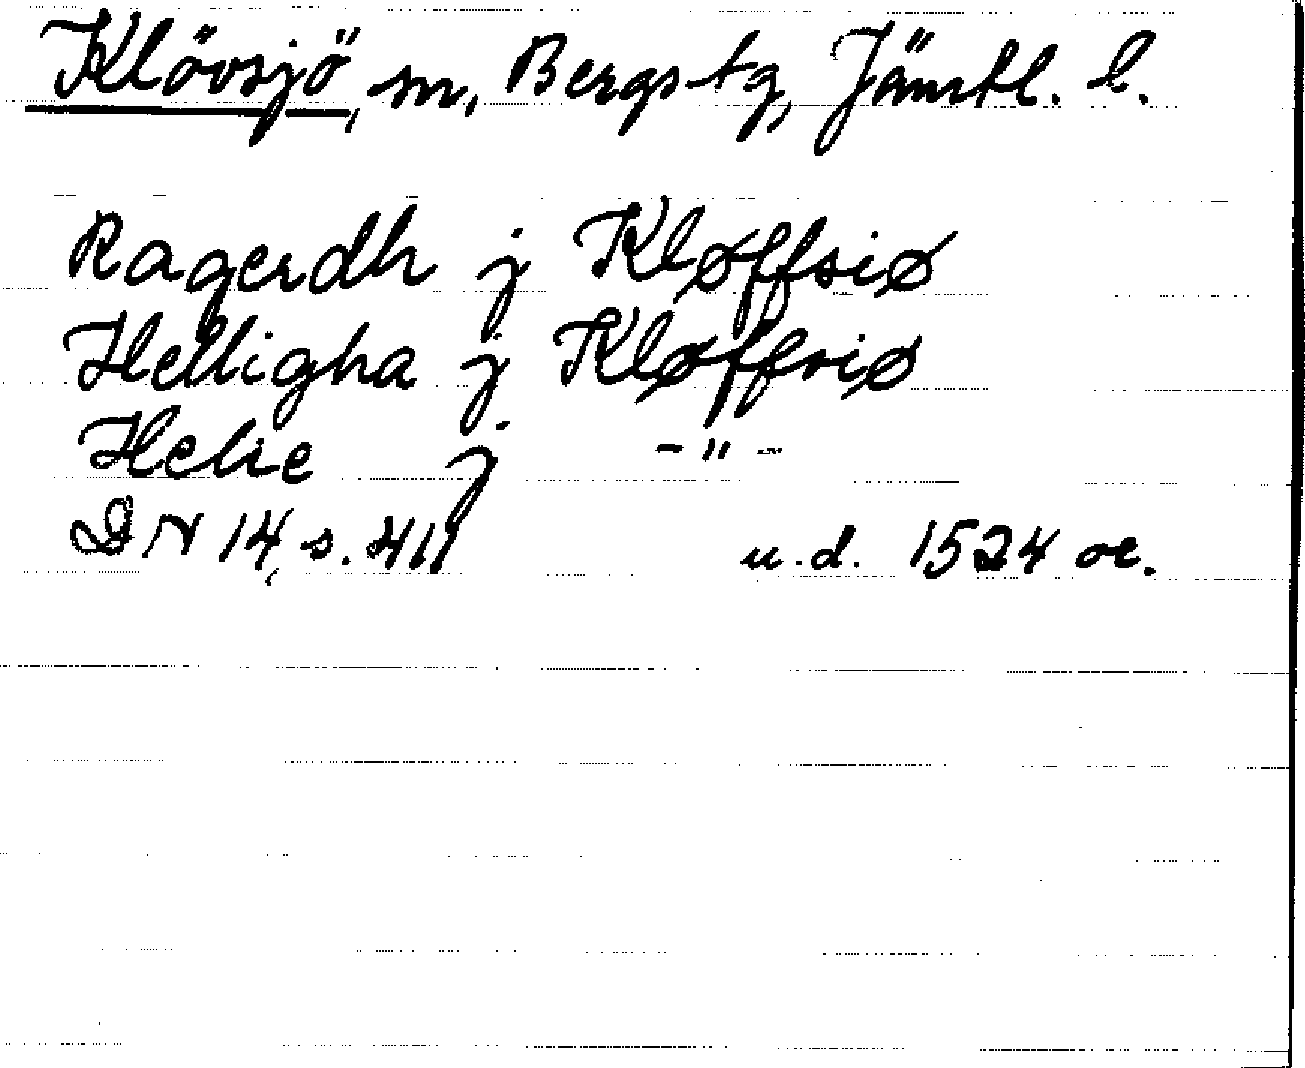 Klövsjö, sn, Bergs tg, Jämtl. l.
Ragerdh j Kløffsiø
Helligha j Kløffsiø
Helie j -"-
DN 14, s. 411 u.d. 1524 oc.